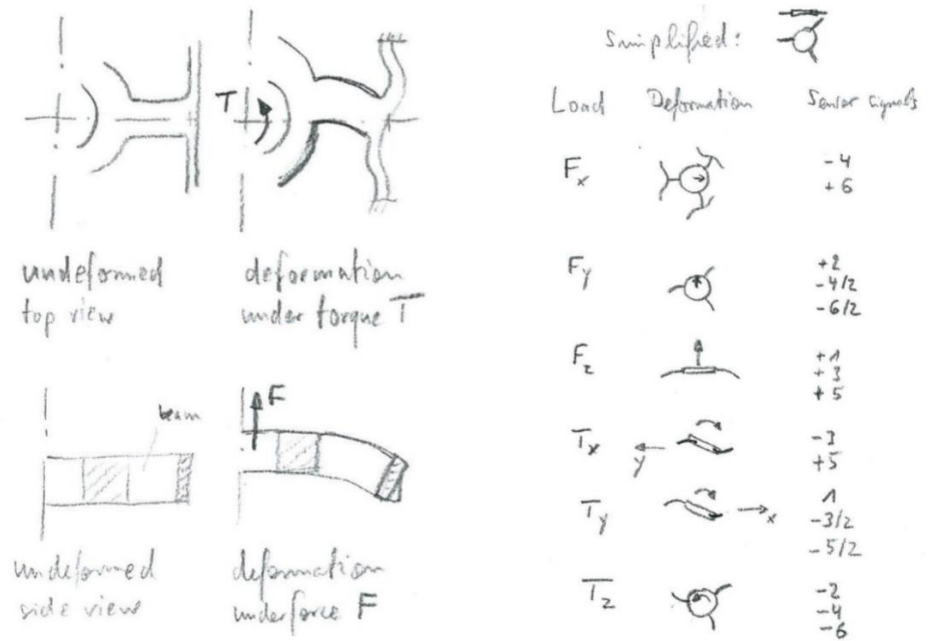 T
undeformed
top view
deformation
under torque T
beam
F
undeformed
side view
deformation
under force F
Simplified:
Load Deformation Sensor signals
Fx
-4
+6
Fy
+2
-4/2
-6/2
Fz
+1
+3
+5
Tx
y
-3
+5
Ty
x
1
-3/2
-5/2
Tz
-2
-4
-6